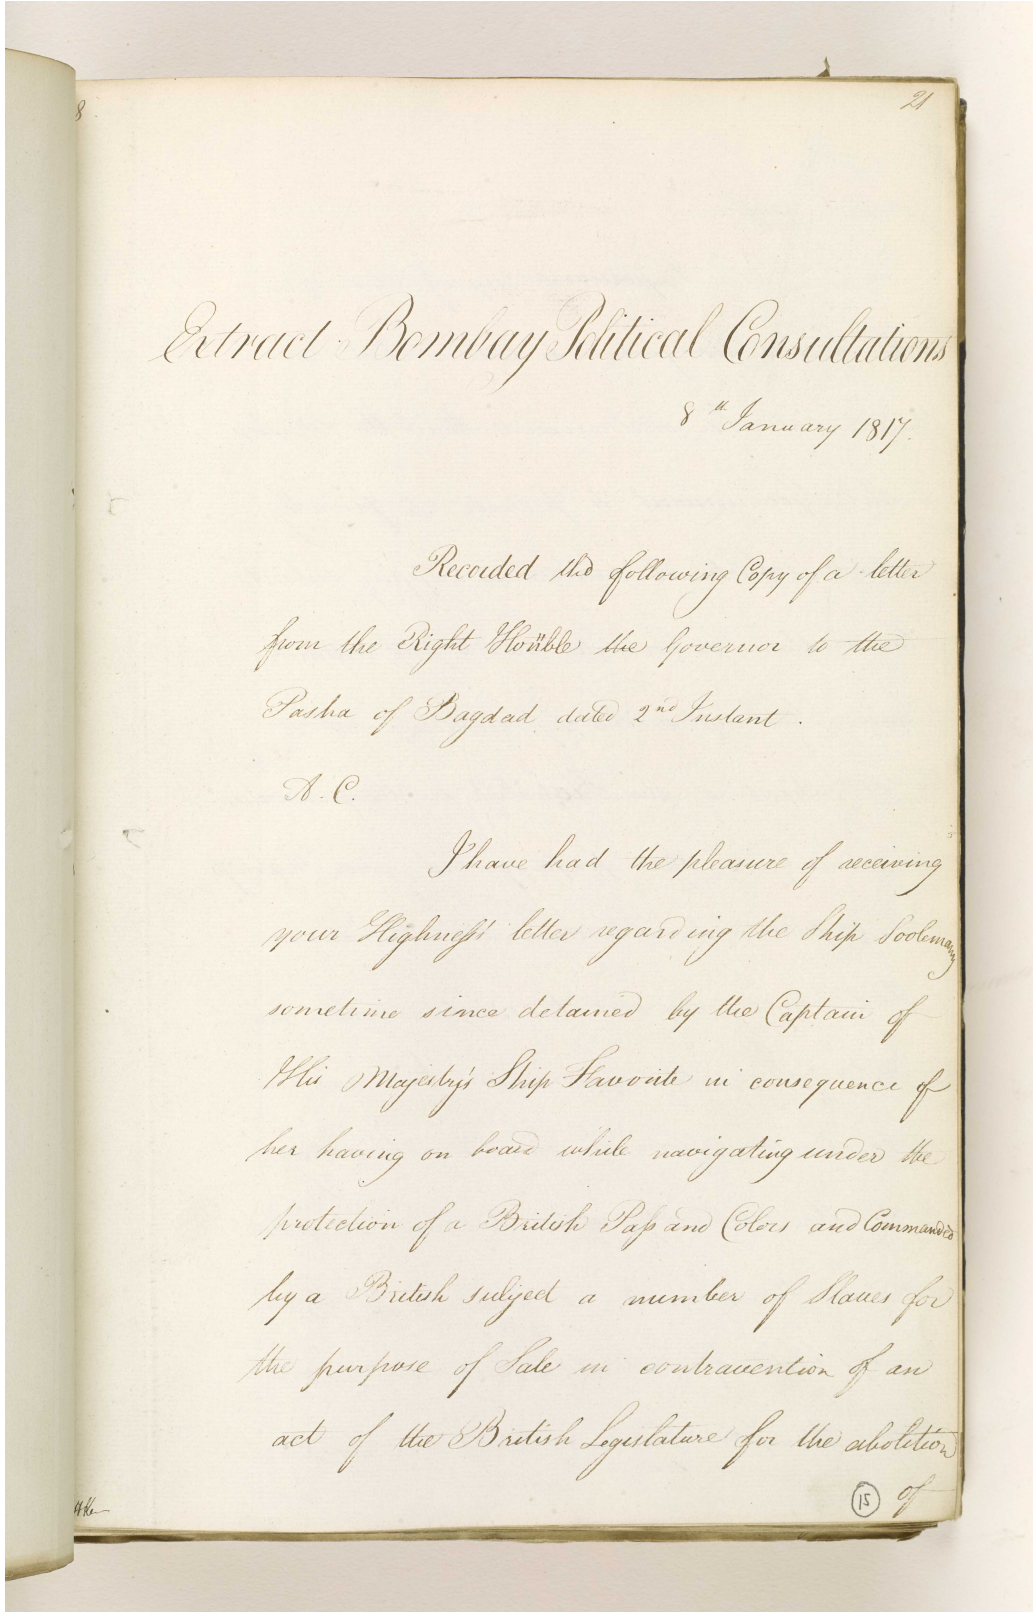 21
Extract Bombay Political Consultations
8th January 1817.
Recorded the following Copy of a letter
from the Right Honble the Governor to the
Pasha of Bagdad dated 2nd Instant.
A. C.
I have had the pleasure of receiving
your Highness's letter regarding the Ship Soolemany
sometime since detained by the Captain of
His Majesty's Ship Favorite in consequence of
her having on board while navigating under the
protection of a British Pass and Colors and Commanded
by a British subject a number of Slaves for
the purpose of Sale in contravention of an
act of the British Legislature for the abolition
of
15